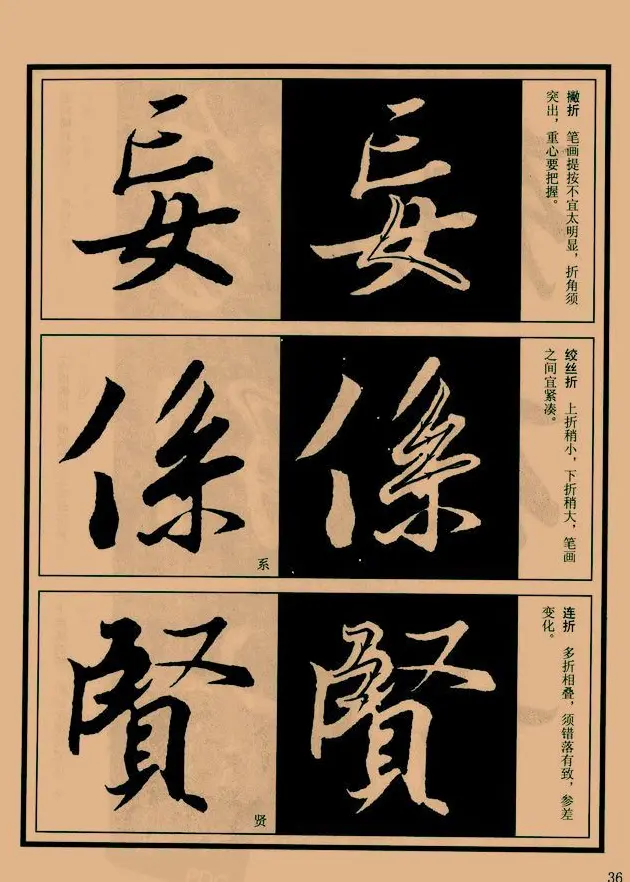 妄
妄
撇折 笔画提按不宜太明显，折角须
突出，重心要把握。
係
係
系
绞丝折 上折稍小，下折稍大，笔画
之间宜紧凑。
賢
賢
贤
连折 多折相叠，须错落有致，参差
变化。
36